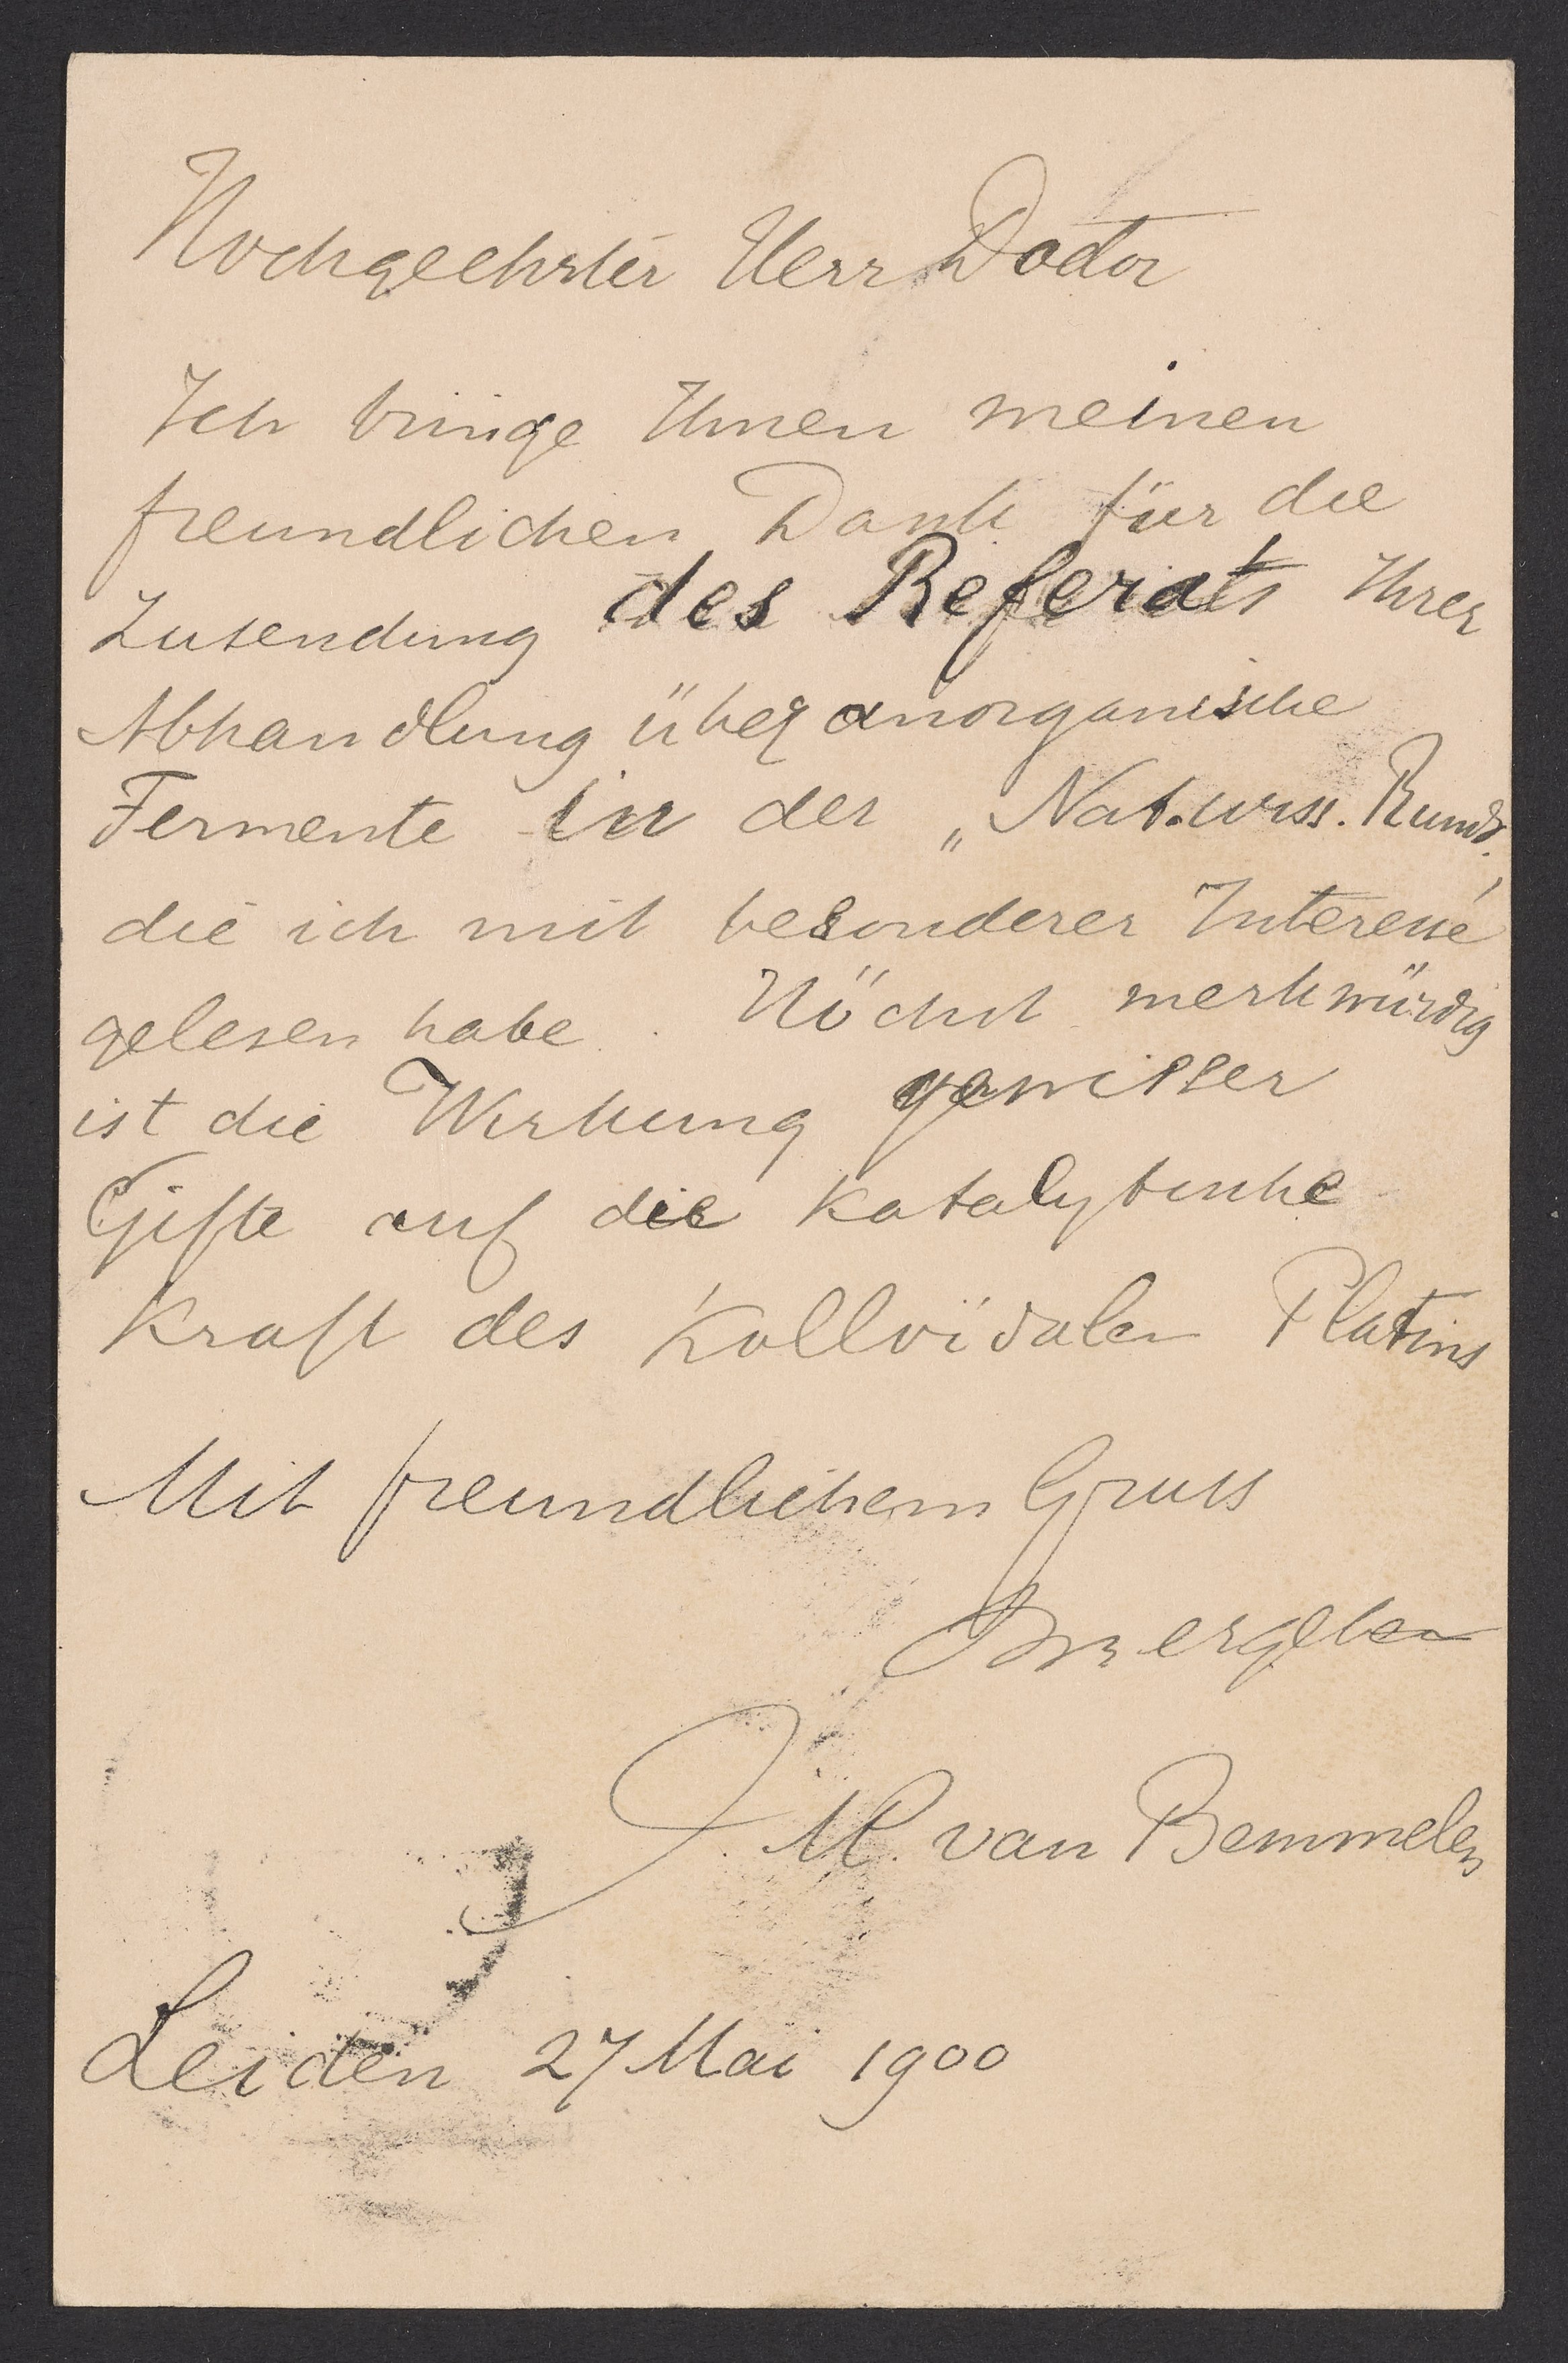 Hochgeehrter Herr Doctor
Ich bringe Ihnen meinen
freundlichen Dank für die
Zusendung des Referats Ihrer
Abhandlung über anorganische
Fermente in der „Nat.wiss. Runds.,
die ich mit besonderer Interesse
gelesen habe. Höchst merkwürdig
ist die Wirkung gewisser
Gifte auf die Katalytische
Kraft des Kolloïdalen Platins
Mit freundlichem Gruss
Ihr ergeben
J. M. van Bemmelen
Leiden 27 Mai 1900